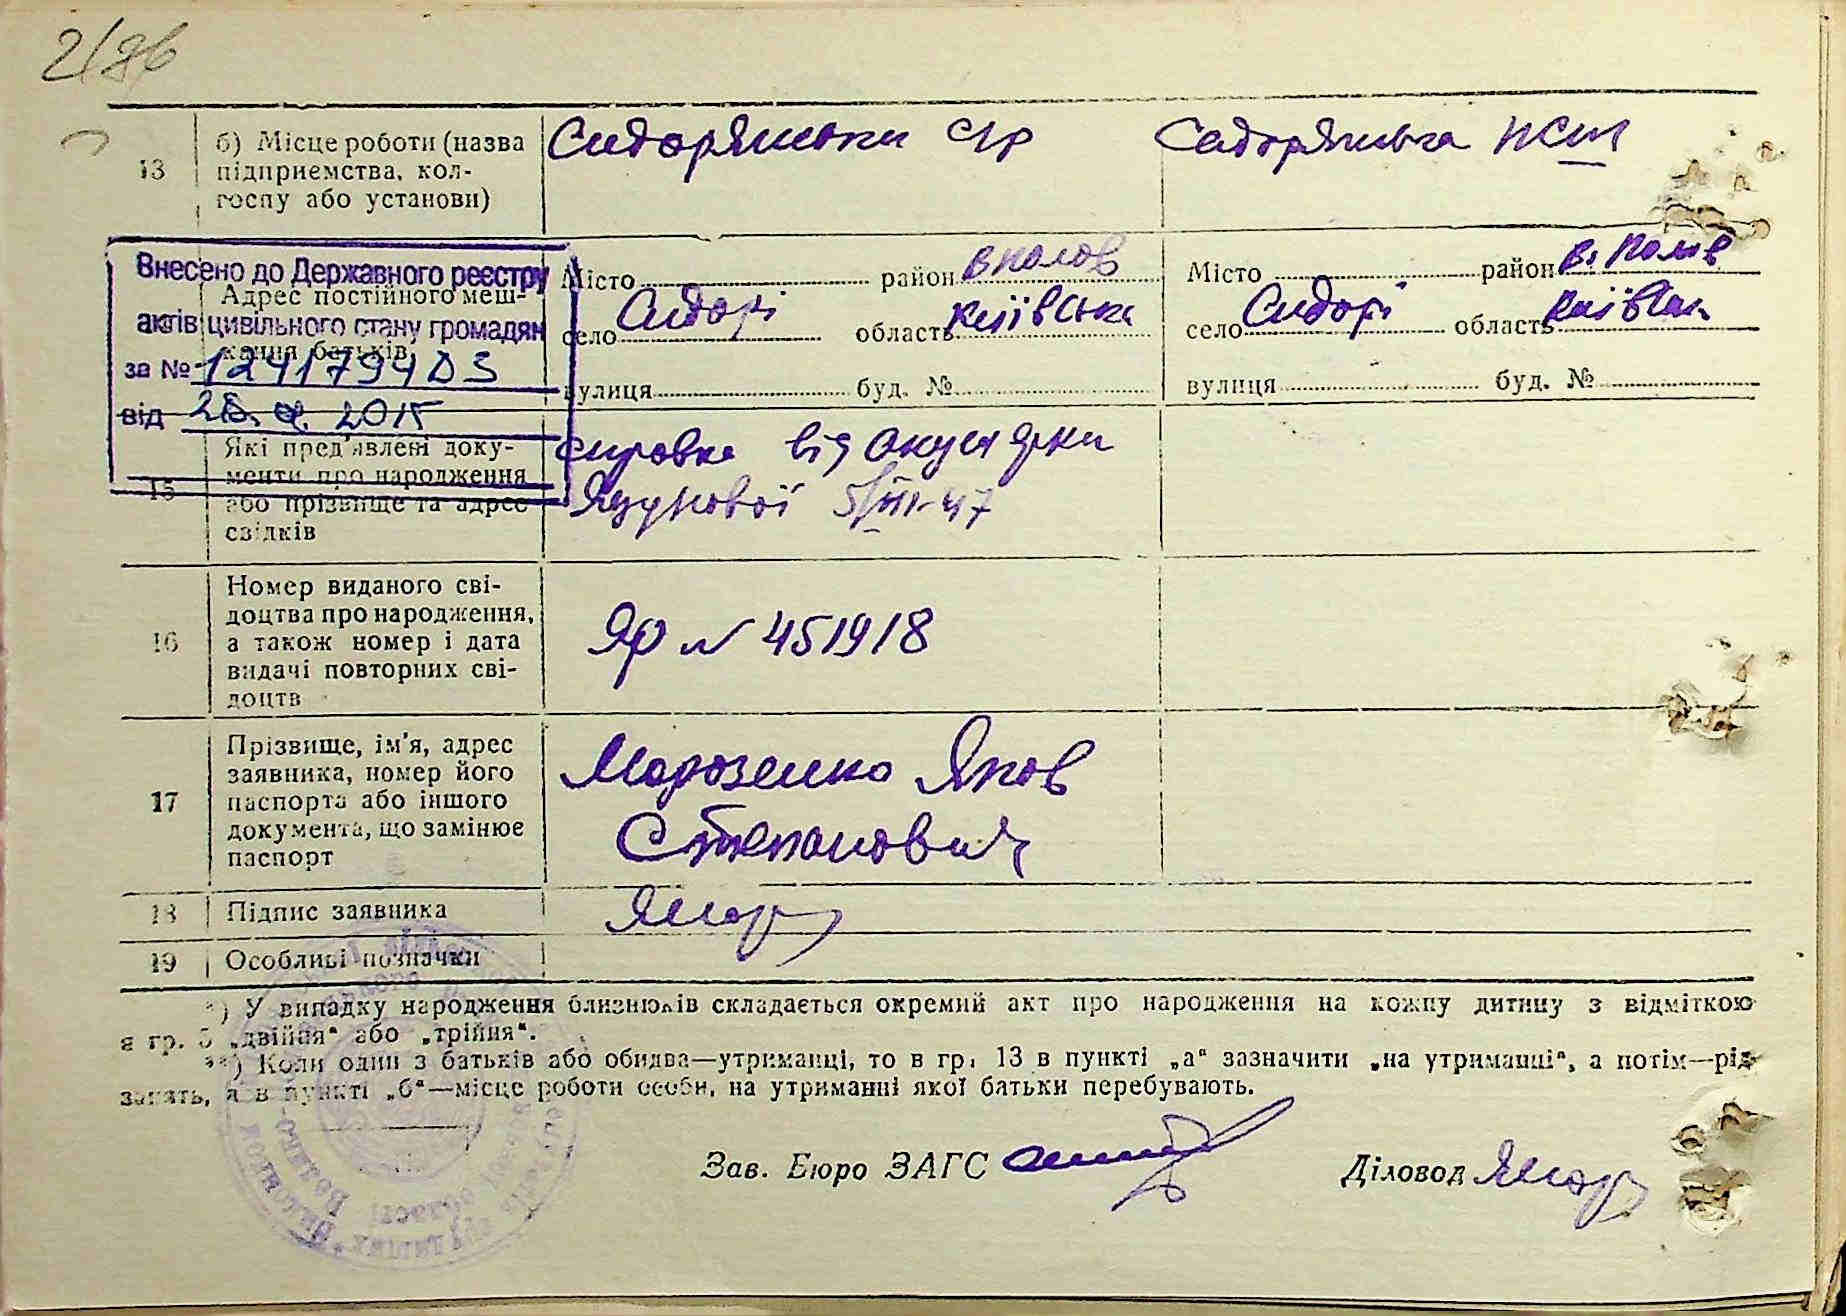 2/86
13
б) Місце роботи (назва
підприємства, кол-
госпу або установи)
Сидорянська с/р
Сидорянська НСШ
Внесено до Державного реєстру
актів цивільного стану громадян
за №
від 2015
Адрес постійного меш-
кання батьків
Місто район
село Сидорі область Київська
вулиця буд. №
Місто район
село Сидорі область Київськ
вулиця буд. №
15
Які пред'явлені доку-
менти про народження
або прізвище та адрес
свідків
справка від акушерки
5/III-47
16
Номер виданого сві-
доцтва про народження,
а також номер і дата
видачі повторних сві-
доцтв
ЯР № 451918
17
Прізвище, ім'я, адрес
заявника, номер його
паспорта або іншого
документа, що замінює
паспорт
Морозенко Яков
Степанович
18
Підпис заявника
19
Особливі позначки
*) У випадку народження близнюків складається окремий акт про народження на кожну дитину з відміткою
в гр. 5 „двійня“ або „трійня“.
**) Коли один з батьків або обидва—утриманці, то в гр. 13 в пункті „а“ зазначити „на утриманні“, а потім—рід
занять, а в пункті „б“—місце роботи особи, на утриманні якої батьки перебувають.
Зав. Бюро ЗАГС
Діловод